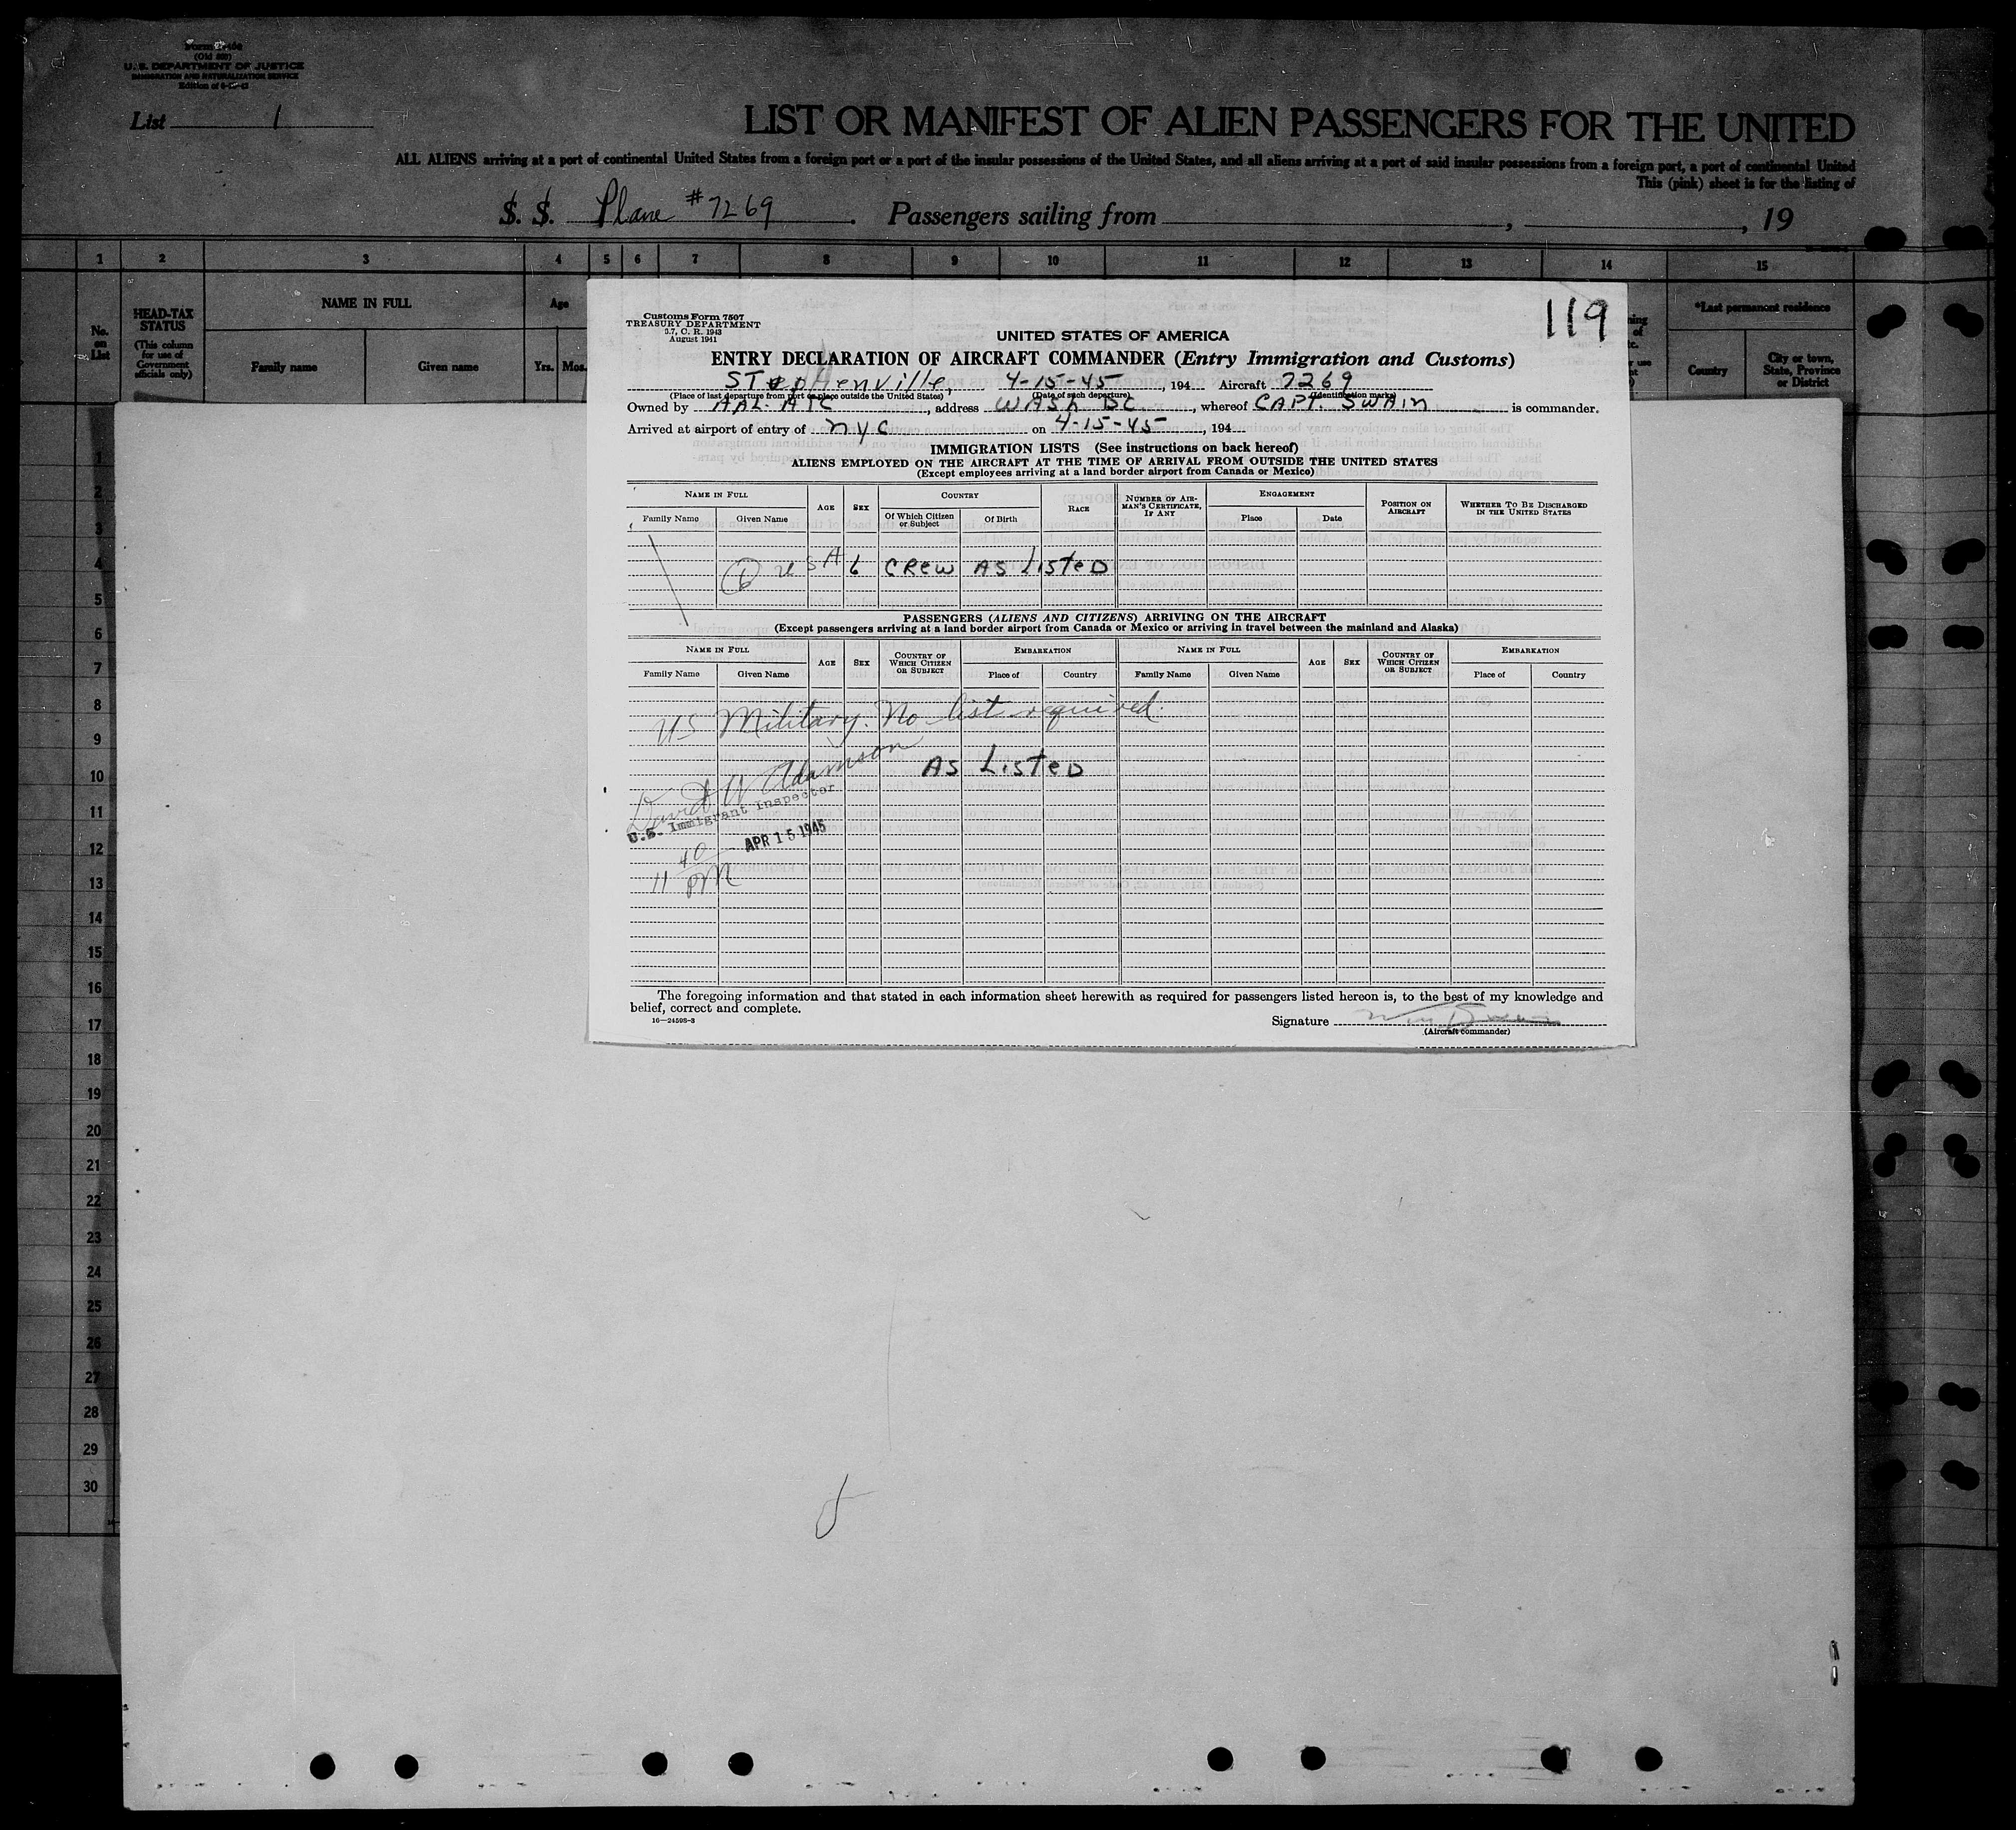 Form I-466
(Old 500)
U. S. DEPARTMENT OF JUSTICE
IMMIGRATION AND NATURALIZATION SERVICE
List 1
LIST OR MANIFEST OF ALIEN PASSENGERS FOR THE UNITED
ALL ALIENS arriving at a port of continental United States from a foreign port or a port of the insular possessions of the United States, and all aliens arriving at a port of said insular possessions from a foreign port, a port of continental United
This (pink) sheet is for the listing of
S. S. Plane #7269. Passengers sailing from , , 19
1 2 3 4 5 6 7 8 9 10 11 12 13 14 15
No. on List
HEAD-TAX STATUS
(This column for use of Government officials only)
NAME IN FULL
Family name Given name
Age
Yrs. Mos.
*Last permanent residence
Country City or town, State, Province or District
119
Customs Form 7507
TREASURY DEPARTMENT
August 1941
UNITED STATES OF AMERICA
ENTRY DECLARATION OF AIRCRAFT COMMANDER (Entry Immigration and Customs)
STephenville, 4-15-45, 194 Aircraft 7269
(Place of last departure from port or place outside the United States) (Date of such departure) (Identification marks)
Owned by AAL-ATC, address WASh DC, whereof CAPT. SWAIN is commander.
Arrived at airport of entry of NYC on 4-15-45, 194
IMMIGRATION LISTS (See instructions on back hereof)
ALIENS EMPLOYED ON THE AIRCRAFT AT THE TIME OF ARRIVAL FROM OUTSIDE THE UNITED STATES
(Except employees arriving at a land border airport from Canada or Mexico)
NAME IN FULL AGE SEX COUNTRY RACE NUMBER OF AIRMAN'S CERTIFICATE, IF ANY ENGAGEMENT POSITION ON AIRCRAFT WHETHER TO BE DISCHARGED IN THE UNITED STATES
Family Name Given Name Of Which Citizen or Subject Of Birth Place Date
6 USA 6 CReW AS LISTeD
PASSENGERS (ALIENS AND CITIZENS) ARRIVING ON THE AIRCRAFT
(Except passengers arriving at a land border airport from Canada or Mexico or arriving in travel between the mainland and Alaska)
NAME IN FULL AGE SEX COUNTRY OF WHICH CITIZEN OR SUBJECT EMBARKATION NAME IN FULL AGE SEX COUNTRY OF WHICH CITIZEN OR SUBJECT EMBARKATION
Family Name Given Name Place of Country Family Name Given Name Place of Country
US Military. No list required.
AS LISTeD
David W Adamson
U.S. Immigrant Inspector
APR 15 1945
11 40 PM
The foregoing information and that stated in each information sheet herewith as required for passengers listed hereon is, to the best of my knowledge and
belief, correct and complete.
16—24598-3
Signature Wm Swain
(Aircraft commander)
1
2
3
4
5
6
7
8
9
10
11
12
13
14
15
16
17
18
19
20
21
22
23
24
25
26
27
28
29
30